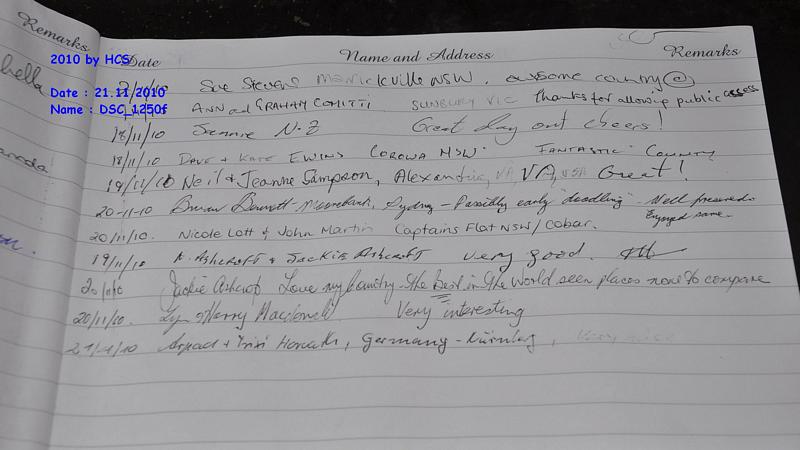 Remarks
Date Name and Address Remarks
2010 by HCS
Date : 21.11.2010
Name : DSC_1250f
hella
/11/10 Sue Stevens Marrickville NSW. awsome country
ANN and GRAHAM COMITTI SUNBURY VIC Thanks for allowing public access
18/11/10 Jeannie N.Z Great day out cheers!
18/11/10 DAVE + KATE EWINS COROWA NSW. FANTASTIC COUNTY
19/11/10 Neil & Jeanne Sampson, Alexandria, VA, VA, USA Great!
20-11-10 Bennett Moorebank, Sydney - Possibly early "deadling". Well preserved.
Enjoyed same.
20/11/10. Nicole Lott & John Martin Captains Flat NSW/Cobar.
19/11/10 A. Ashcroft & Jackie Ashcroft very good.
20/11/10 Jackie Ashcroft Love my Country - the Best in the World seen places now to compare
20/11/10. Lyn & Harry Macdonald Very interesting
21/11/10 Arpad + Horvath, Germany - Nürnberg, Very nice